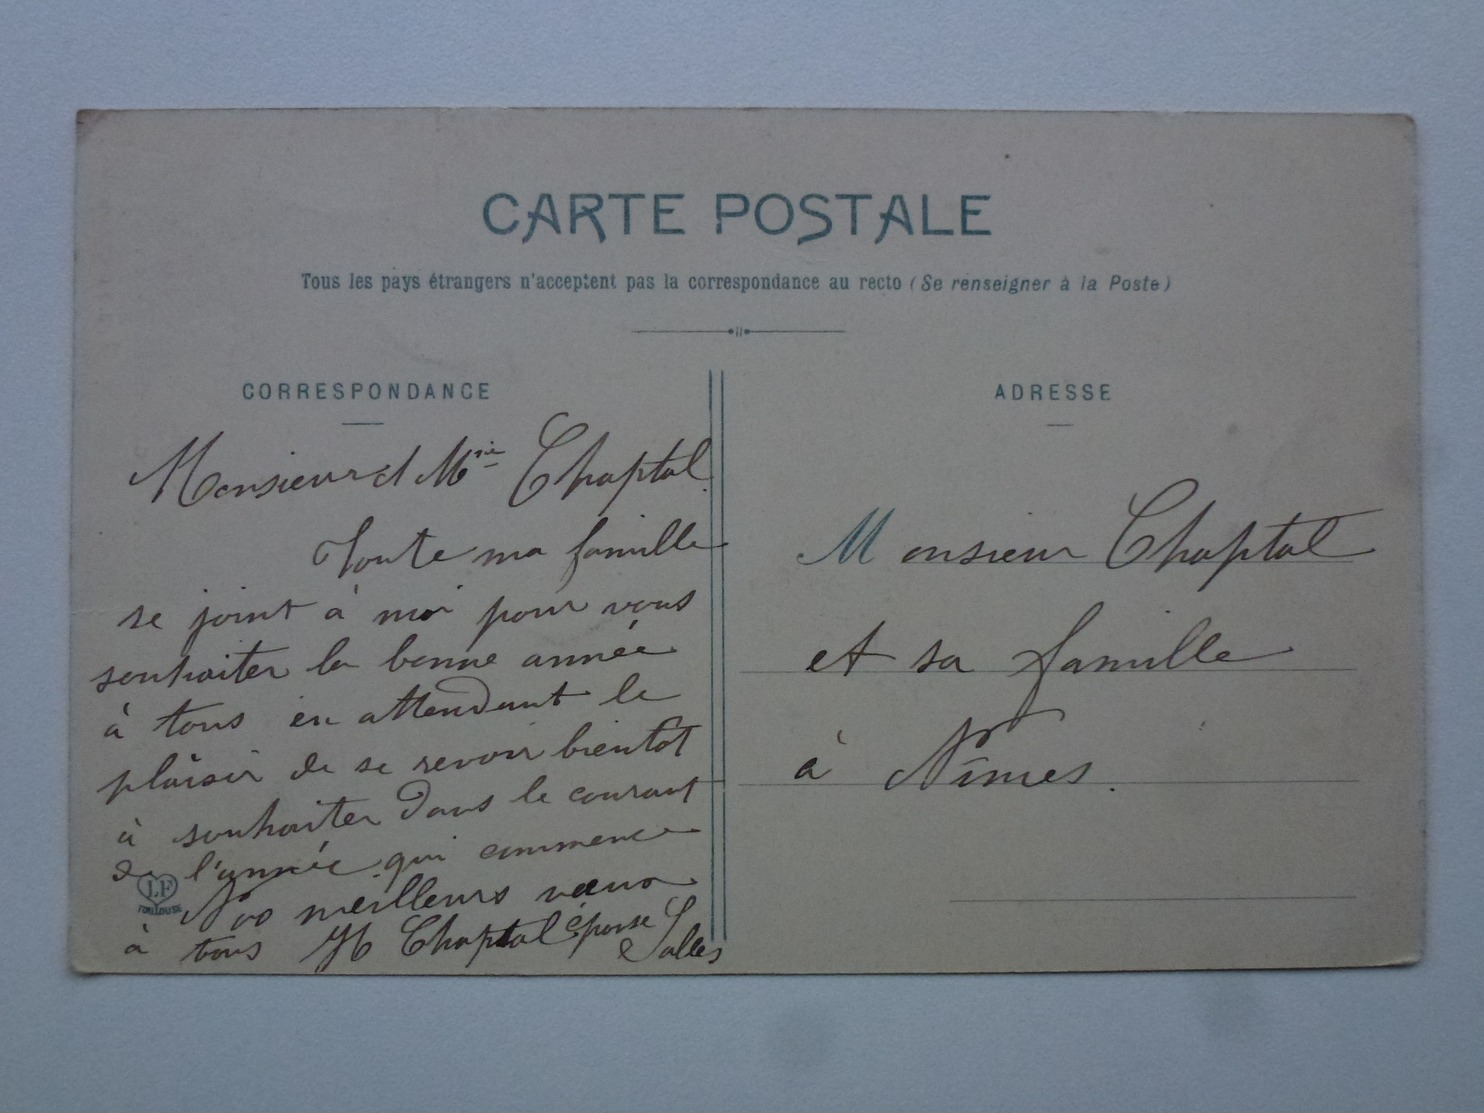 CARTE POSTALE
Tous les pays étrangers n'acceptent pas la correspondance au recto (Se renseigner à la Poste)
CORRESPONDANCE
Monsieur et Mme Chaptal
Toute ma famille
se joint à moi pour vous
souhaiter la bonne année
à tous en attendant le
plaisir de se revoir bientôt
à souhaiter dans le courant
de l'année qui commence
Nos meilleurs vœux
à tous H Chaptal épouse
Salles
LF
TOULOUSE
ADRESSE
Monsieur Chaptal
et sa famille
à Nîmes.